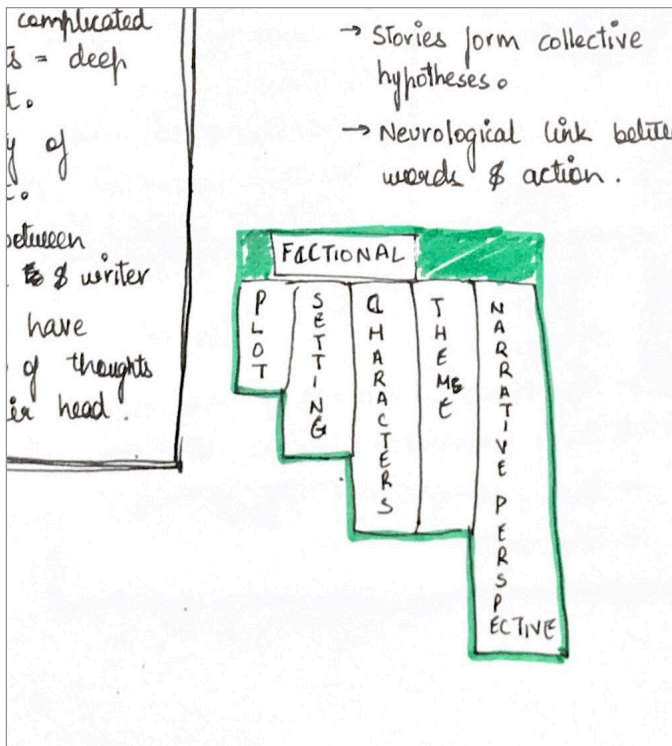 complicated
= deep
of
between
& writer
have
of thoughts
head.
→ Stories form collective
hypotheses.
→ Neurological link
words & action.
FICTIONAL
PLOT
SETTING
CHARACTERS
THEME
NARRATIVE PERSPECTIVE